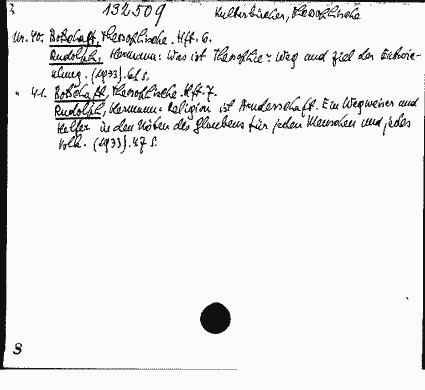 132509 Kulturbücher, Theosophische
Nr. 40. Botschaft, Theosophische. Hft. 6.
Rudolph, Hermann: Was ist Theosophie? Weg und Ziel der Entwic-
klung. (1933). 61 S.
" 41. Botschaft, Theosophische. Hft. 7.
Rudolph, Hermann: Religion ist Kindesschaft. Ein Wegweiser und
Helfer in den Nöten des Glaubens für jeden Menschen und jedes
Volk. (1933). 47 S.
8